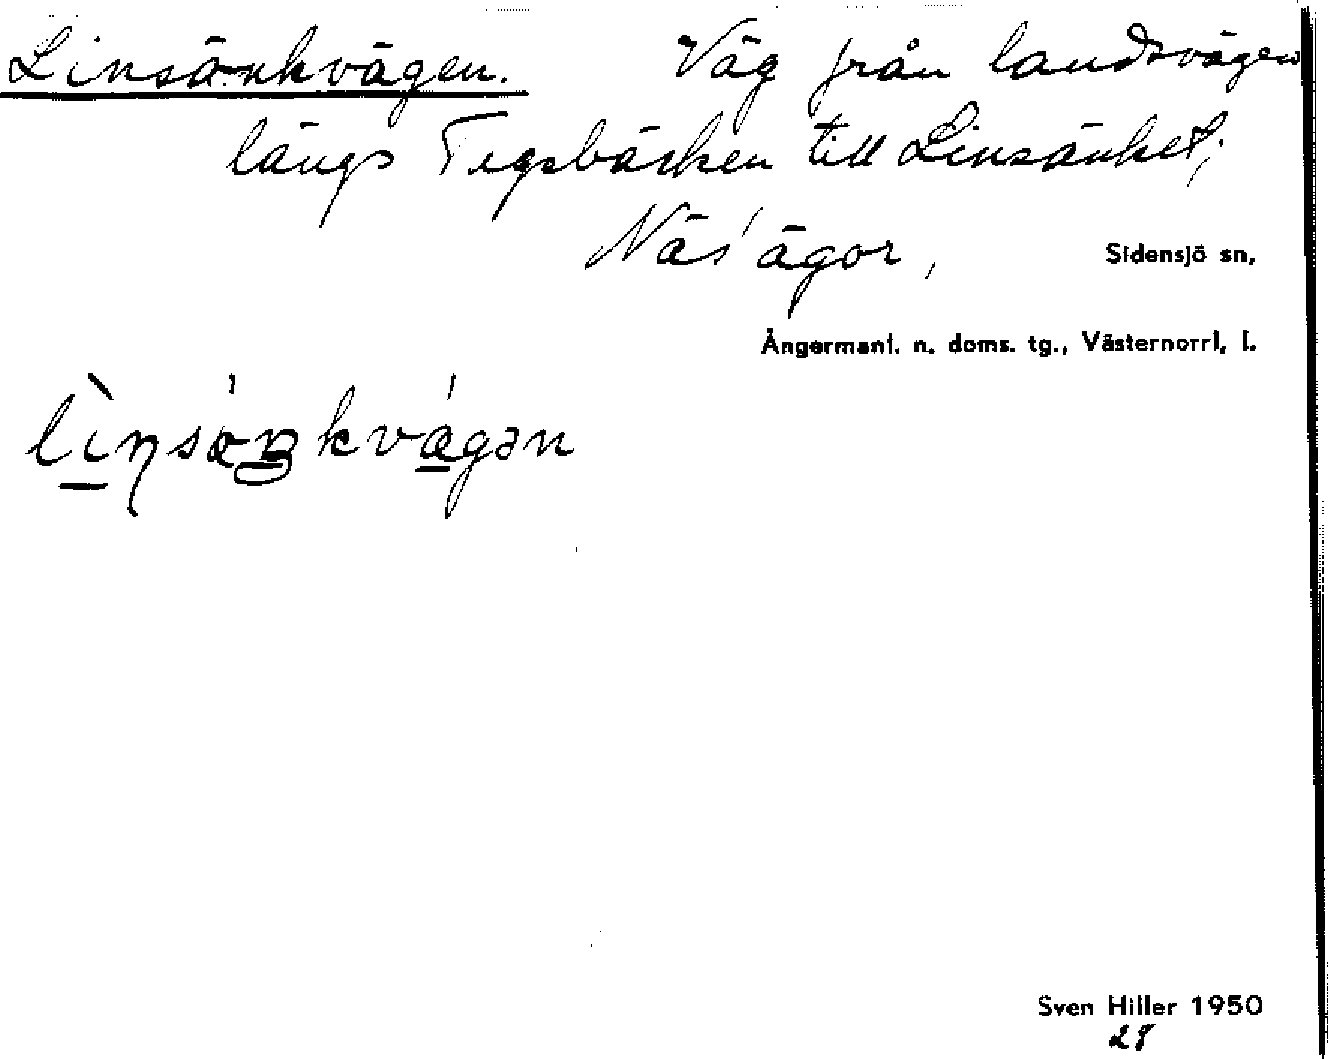 Linsänkvägen. Väg från landsvägen
längs Tegsbäcken till Linsänket;
Näs' ägor,
Sidensjö sn,
Ångermanl. n. doms. tg., Västernorrl. l.
Sven Hiller 1950
28